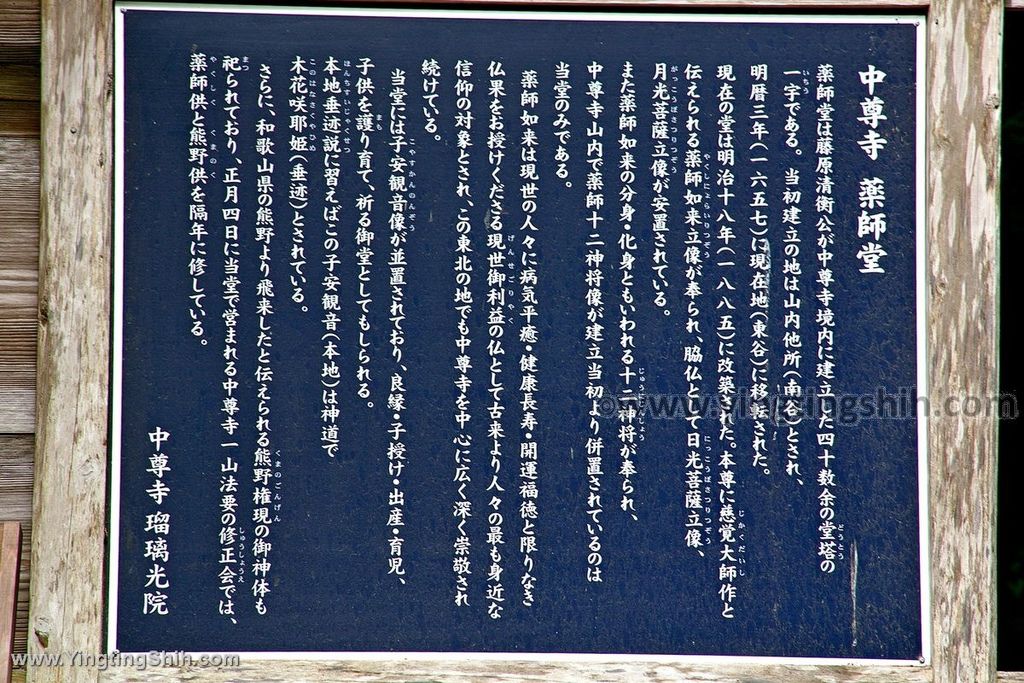 中尊寺 薬師堂
薬師堂は藤原清衡公が中尊寺境内に建立した四十数余の堂塔の
一宇である。当初建立の地は山内他所(南谷)とされ、
明暦三年(一六五七)に現在地(東谷)に移転された。
現在の堂は明治十八年(一八八五)に改築された。本尊に慈覚大師作と
伝えられる薬師如来立像が奉られ、脇仏として日光菩薩立像、
月光菩薩立像が安置されている。
また薬師如来の分身・化身ともいわれる十二神将が奉られ、
中尊寺山内で薬師十二神将像が建立当初より併置されているのは
当堂のみである。
薬師如来は現世の人々に病気平癒・健康長寿・開運福徳と限りなき
仏果をお授けくださる現世御利益の仏として古来より人々の最も身近な
信仰の対象とされ、この東北の地でも中尊寺を中心に広く深く崇敬され
続けている。
当堂には子安観音像が並置されており、良縁・子授け・出産・育児、
子供を護り育て、祈る御堂としてもしられる。
本地垂迹説に習えばこの子安観音(本地)は神道で
木花咲耶姫(垂迹)とされている。
さらに、和歌山県の熊野より飛来したと伝えられる熊野権現の御神体も
祀られており、正月四日に当堂で営まれる中尊寺一山法要の修正会では、
薬師供と熊野供を隔年に修している。
中尊寺瑠璃光院
©www.yingtingshih.com
www.YingtingShih.com